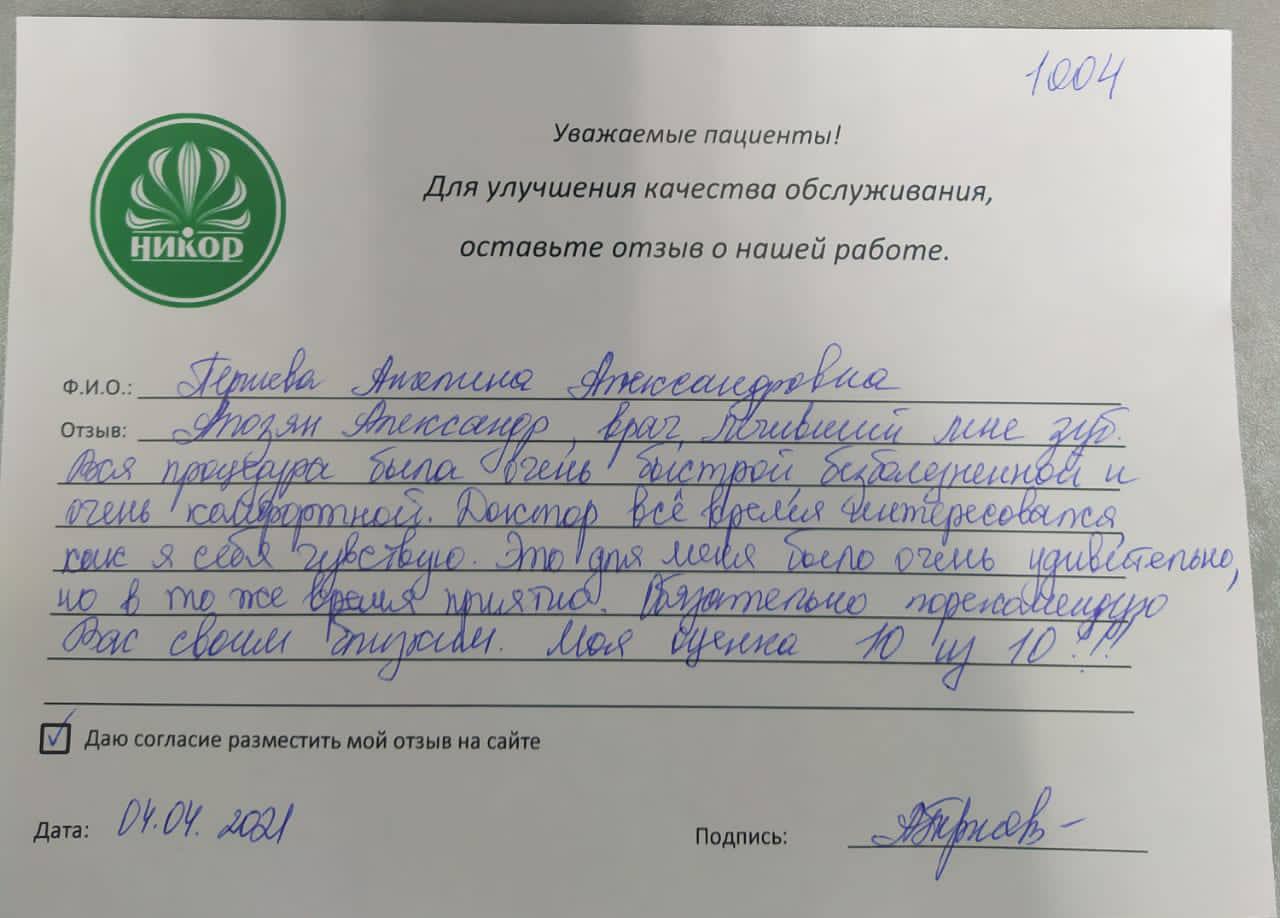 1004
Уважаемые пациенты!
Для улучшения качества обслуживания,
оставьте отзыв о нашей работе.
НИКОР
Ф.И.О.: Александровна
Отзыв: Александр, врач, лечивший мне зуб.
Вся процедура была очень быстрой безболезненной и
очень комфортной. Доктор всё время интересовался
как я себя чувствую. Это для меня было очень удивительно,
но в то же время приятно. Обязательно порекомендую
Вас своим близким. Моя оценка 10 из 10!!!
Даю согласие разместить мой отзыв на сайте
Дата: 04.04.2021
Подпись: